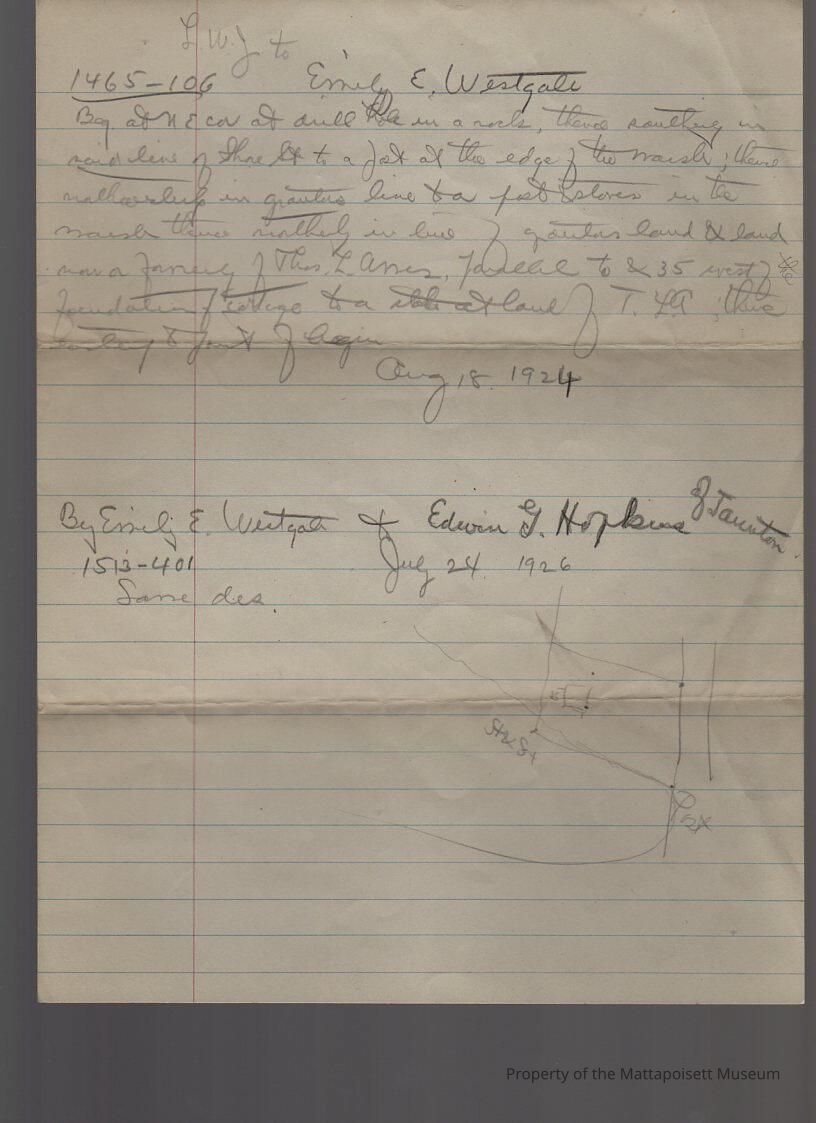 L.W.J to
1465-106 Emily E. Westgate
Beg. at N E cor at drill hole in a rock, thence southerly in
said line of Shore St to a post at the edge of the marsh; thence
in grantors line to a post & stones in the
marsh thence northerly in line of grantors land & land
now or formerly of Thos. L. Ames, parallel to & 35 west of the
foundation of cottage to a stake at land of T. LA ; thence
easterly to point of begin
Aug 18. 1924
By Emily E. Westgate to Edwin G. Hopkins of Taunton.
1513-401 July 24 1926
Same des.
St & St
Post
Property of the Mattapoisett Museum